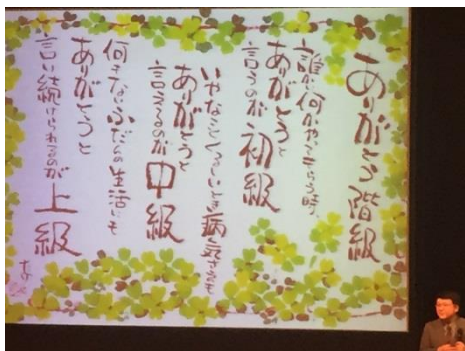 ありがとう階級
誰かに何かやってもらう時、
ありがとうと
言うのが初級
いやなことくるしいとき病気さえも
ありがとうと
言えるのが中級
何もないふだんの生活にも
ありがとうと
言い続けられるのが上級